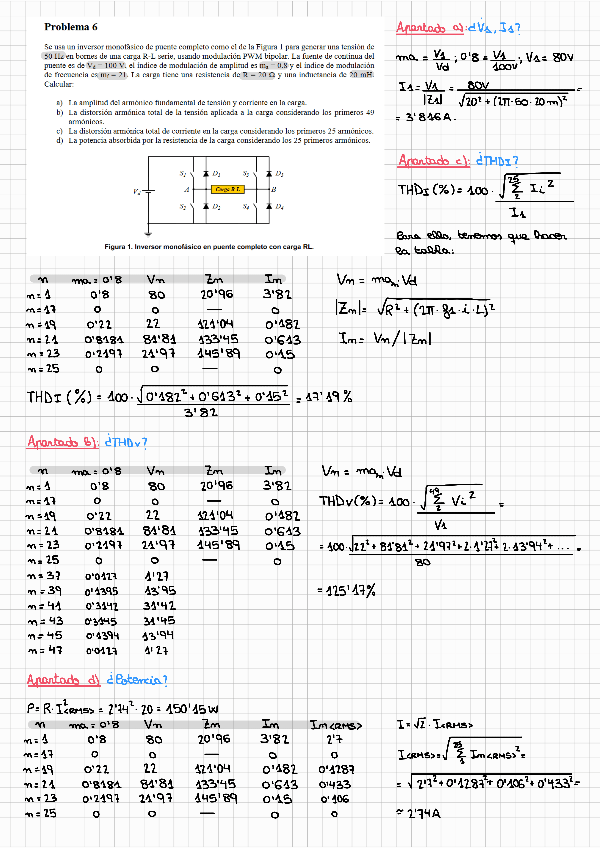 Problema 6
Se usa un inversor monofásico de puente completo como el de la Figura 1 para generar una tensión de
50 Hz en bornes de una carga R-L serie, usando modulación PWM bipolar. La fuente de continua del
puente es de Vd = 100 V, el índice de modulación de amplitud es ma = 0,8 y el índice de modulación
de frecuencia es mf = 21. La carga tiene una resistencia de R = 20 Ω y una inductancia de 20 mH.
Calcular:
a) La amplitud del armónico fundamental de tensión y corriente en la carga.
b) La distorsión armónica total de la tensión aplicada a la carga considerando los primeros 49
armónicos.
c) La distorsión armónica total de corriente en la carga considerando los primeros 25 armónicos.
d) La potencia absorbida por la resistencia de la carga considerando los 25 primeros armónicos.
A Carga R-L B
Figura 1. Inversor monofásico en puente completo con carga RL.
Apartado a): ¿V1, I1?
ma = V1/Vd ; 0'8 = V1/100V ; V1 = 80V
I1 = V1/|Z1| = 80V/√20² + (2π·50·20m)² =
= 3'816A.
Apartado c): ¿THDI?
THDI(%) = 100·√∑ Ii²/I1
Para ello, tenemos que hacer
la tabla:
n ma = 0'8 Vn Zn In
n=1 0'8 80 20'96 3'82
n=17 0 0 — 0
n=19 0'22 22 121'04 0'182
n=21 0'8181 81'81 133'45 0'613
n=23 0'2197 21'97 145'89 0'15
n=25 0 0 — 0
Vn = man·Vd
|Zn| = √R² + (2π·f1·i·L)²
In = Vn/|Zn|
THDI(%) = 100·√0'182² + 0'613² + 0'15²/3'82 = 17'19%
Apartado b): ¿THDv?
n ma = 0'8 Vn Zn In
n=1 0'8 80 20'96 3'82
n=17 0 0 — 0
n=19 0'22 22 121'04 0'182
n=21 0'8181 81'81 133'45 0'613
n=23 0'2197 21'97 145'89 0'15
n=25 0 0 — 0
n=37 0'0127 1'27
n=39 0'1395 13'95
n=41 0'3142 31'42
n=43 0'3145 31'45
n=45 0'1394 13'94
n=47 0'0127 1'27
Vn = man·Vd
THDv(%) = 100·√∑ Vi²/V1 =
= 100·√22² + 81'81² + 21'97² + 2·1'27² + 2·13'94² + .../80 =
= 125'17%
Apartado d) ¿Potencia?
P = R·I²<RMS> = 2'74²·20 = 150'15W
n ma = 0'8 Vn Zn In In<RMS>
n=1 0'8 80 20'96 3'82 2'7
n=17 0 0 — 0 0
n=19 0'22 22 121'04 0'182 0'1287
n=21 0'8181 81'81 133'45 0'613 0'433
n=23 0'2197 21'97 145'89 0'15 0'106
n=25 0 0 — 0 0
I = √2·I<RMS>
I<RMS> = √∑ In<RMS>² =
= √2'7² + 0'1287² + 0'106² + 0'433² =
≈ 2'74A